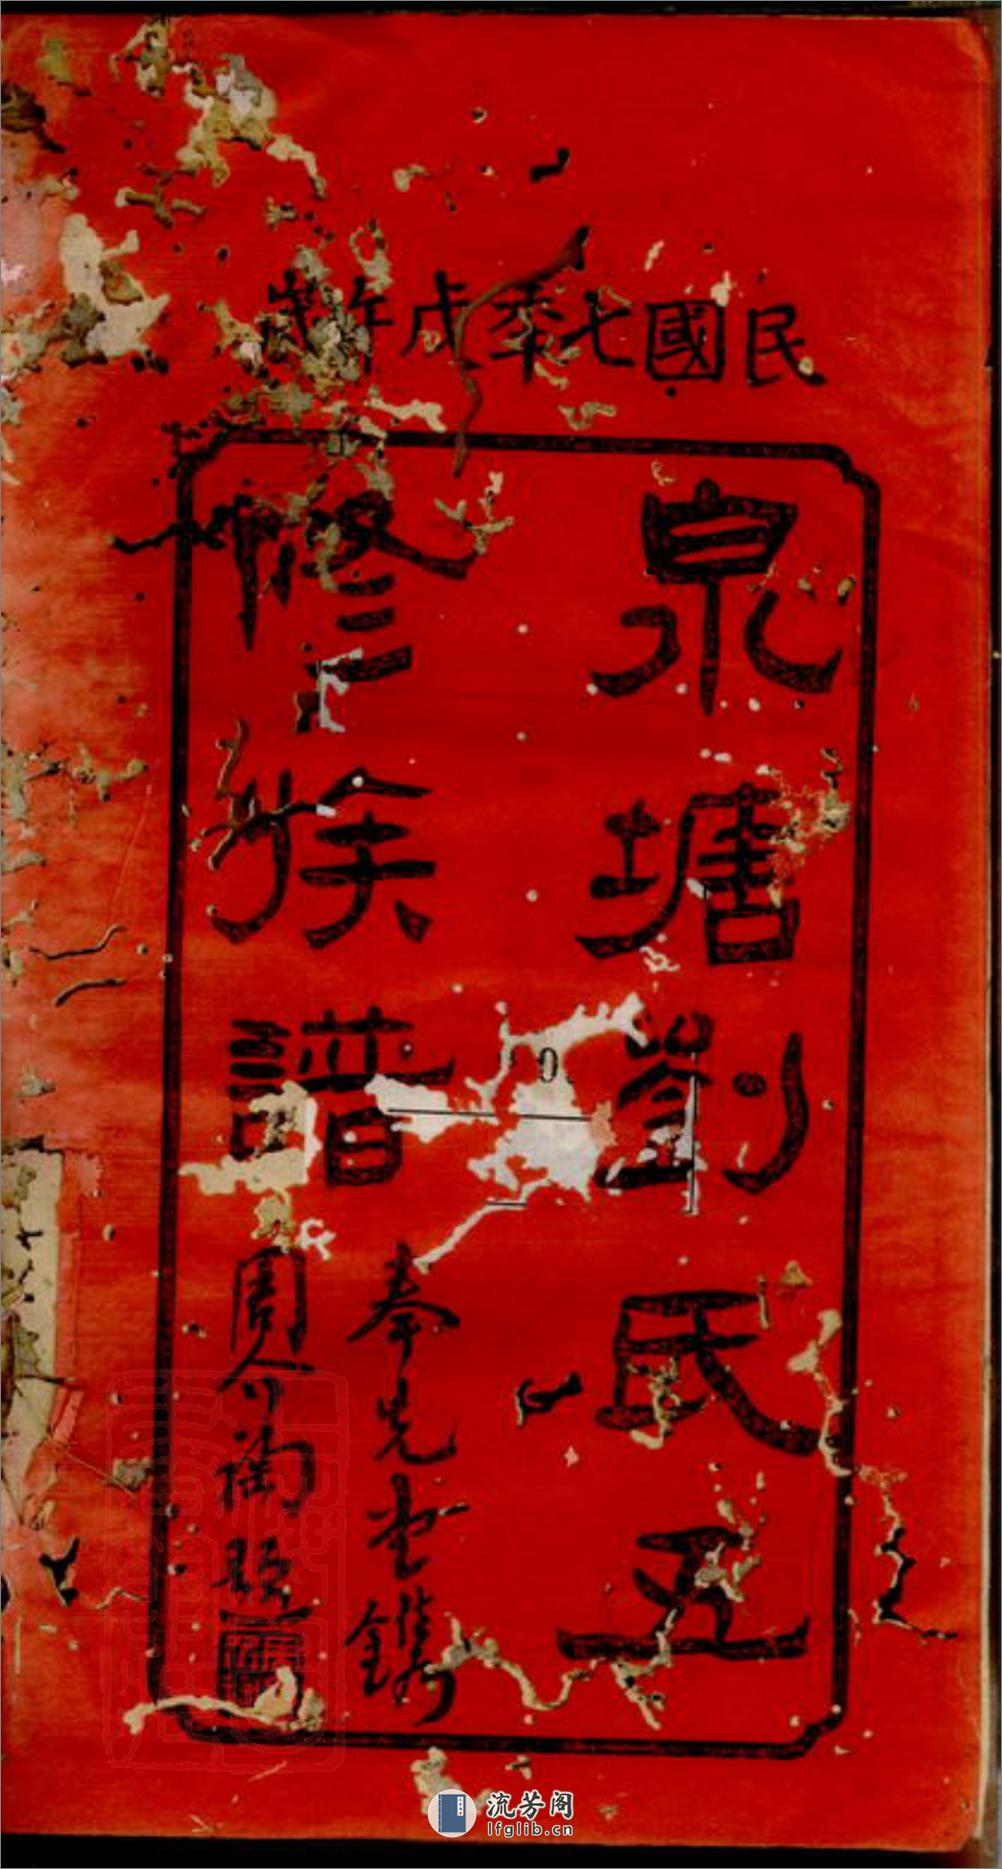 民國七年戊午歲
泉塘劉氏五
修族譜
奉先堂鐫
周介裪題
0.
流芳阁
lfglib.cn